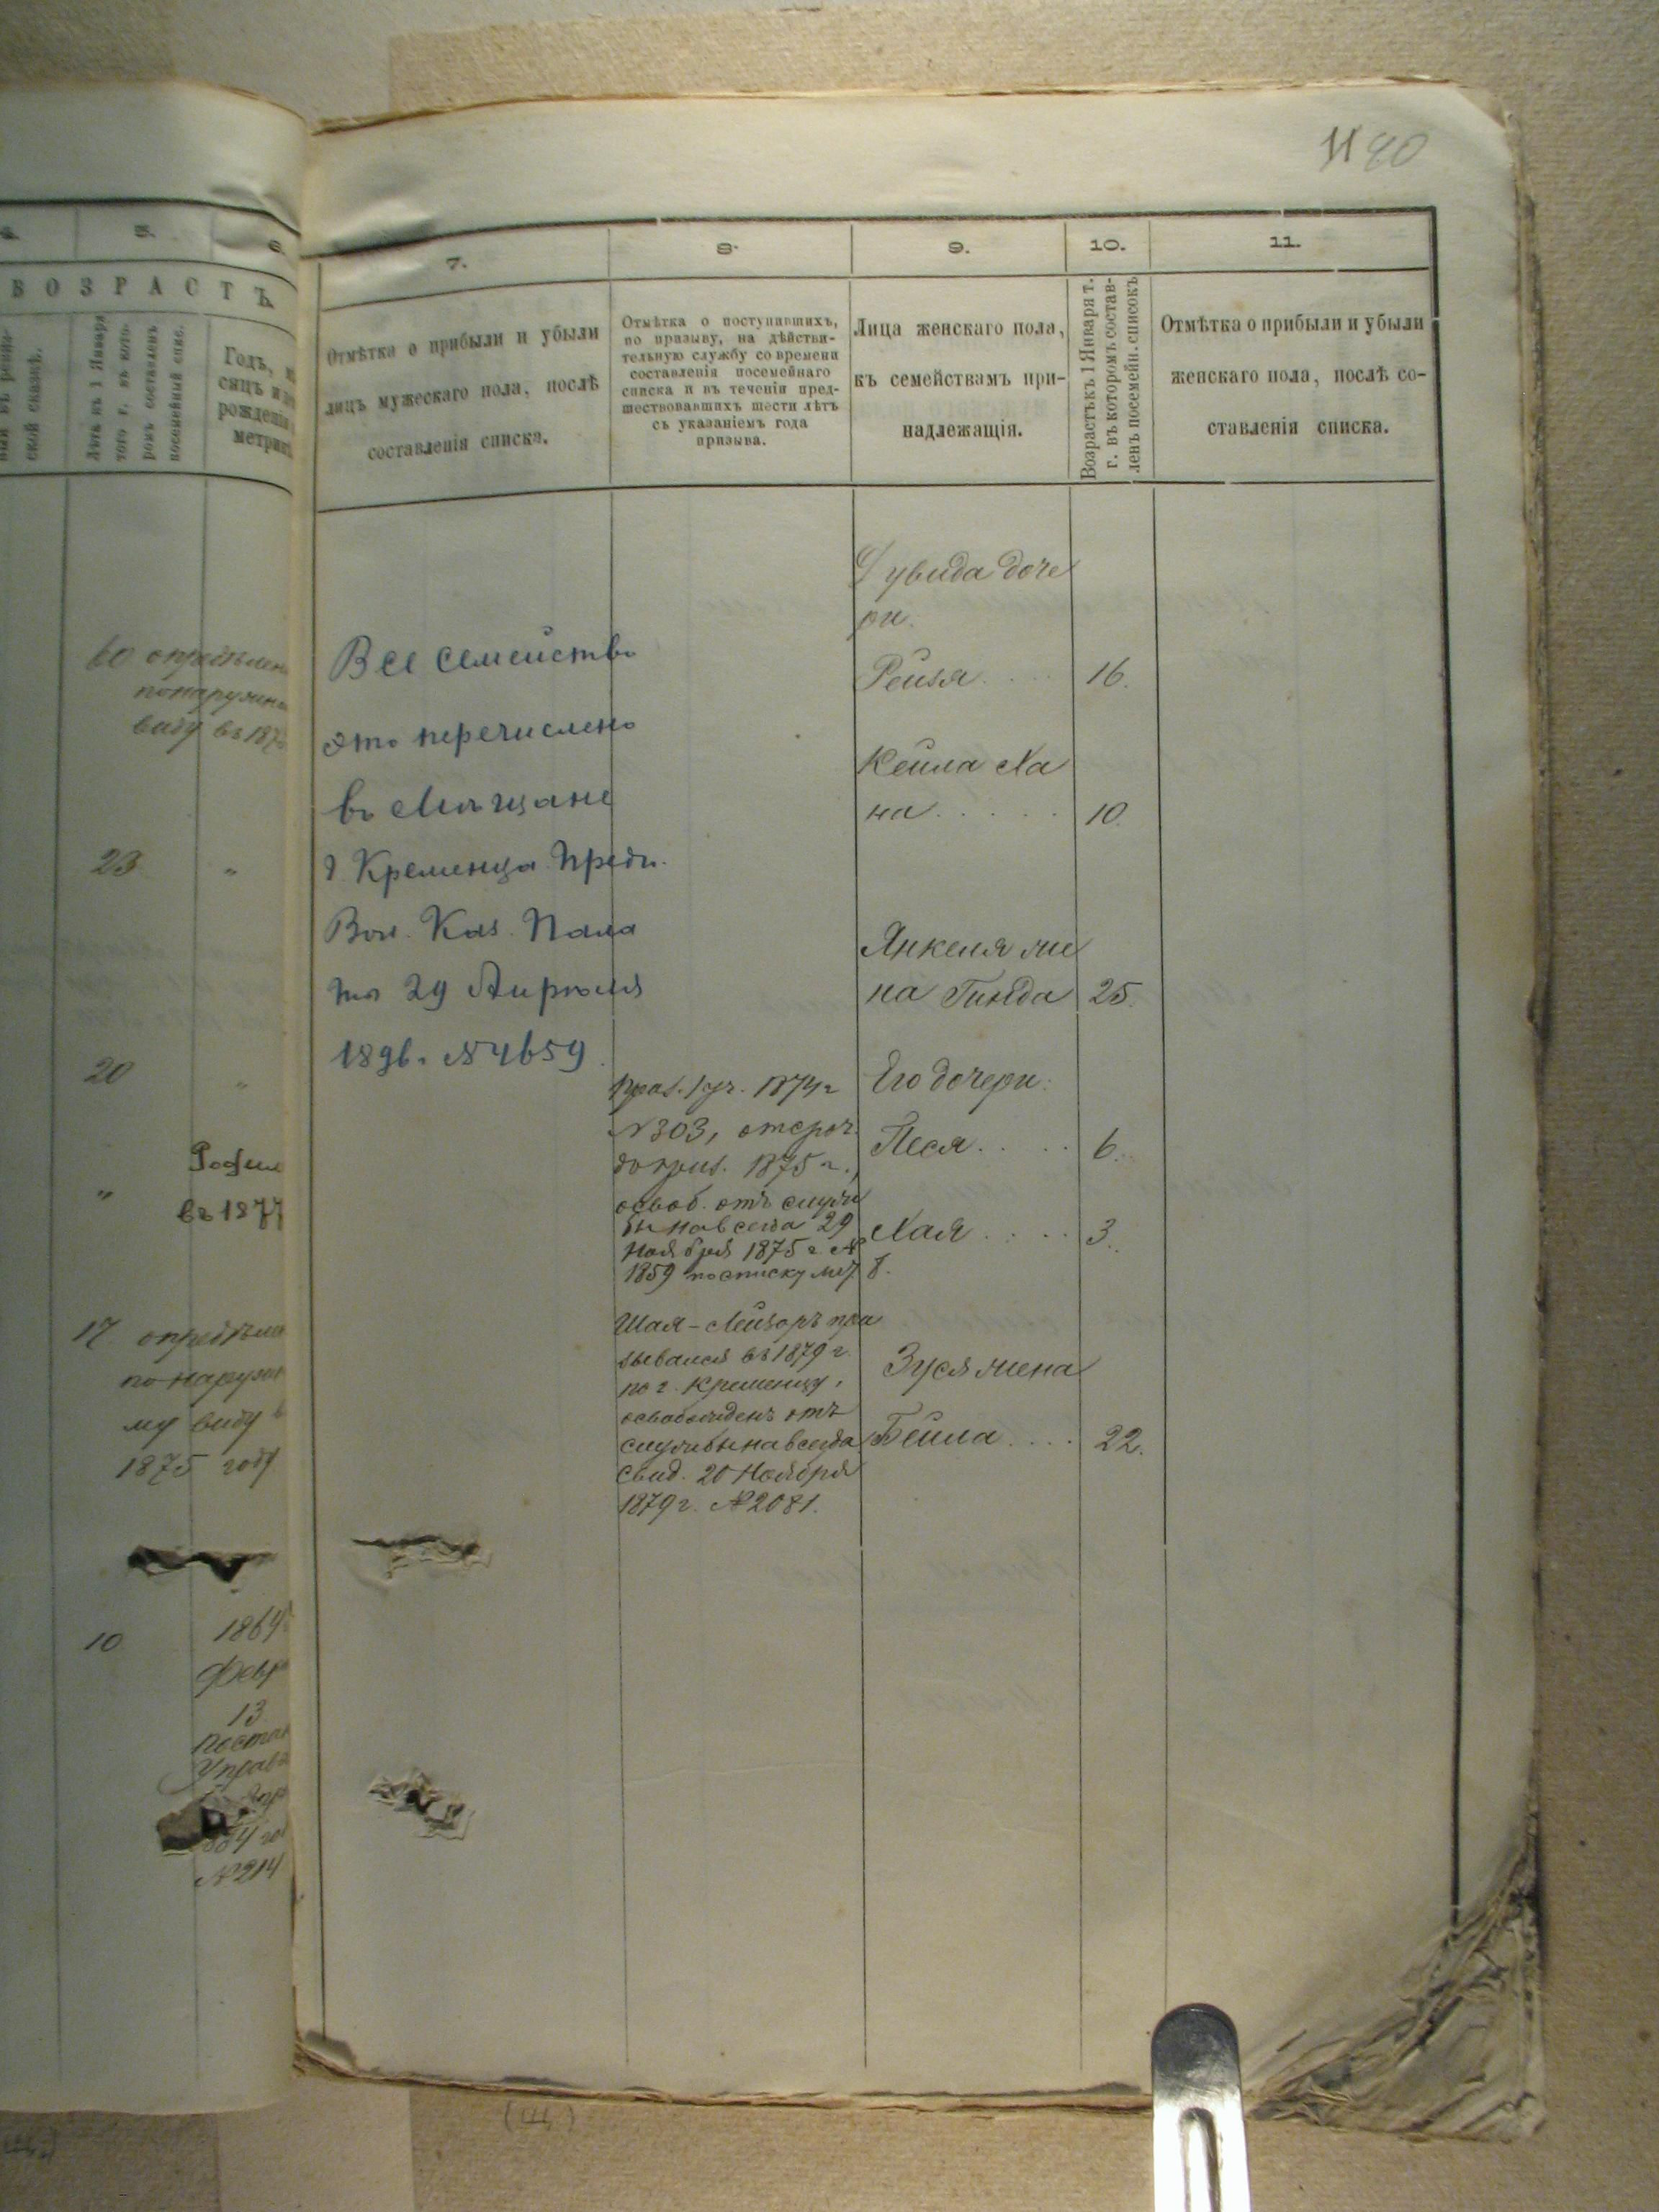 1120
4.
5.
6.
ВОЗРАСТЪ.
ской сказкѣ.
Лѣтъ къ 1 Января
того г. въ кото-
ромъ составленъ
посемейный спис.
Годъ,
сяцъ и
рожденія
метрик
60 опредѣлен
по наружно
виду въ 187
23 „
20 „
„ Родил
въ 1877
17 опредѣле
по наружн
му виду в
1875 году
10 1864
Февр
13
Постан
Управ
№214
7.
8.
9.
10.
11.
Отмѣтка о прибыли и убыли
лицъ мужескаго пола, послѣ
составленія списка.
Отмѣтка о поступившихъ,
по призыву, на дѣйстви-
тельную службу со времени
составленія посемейнаго
списка и въ теченіи пред-
шествовавшихъ шести лѣтъ
съ указаніемъ года
призыва.
Лица женскаго пола,
къ семействамъ при-
надлежащія.
Возрастъ къ 1 Января т.
г. въ которомъ состав-
ленъ посемейн. списокъ
Отмѣтка о прибыли и убыли
женскаго пола, послѣ со-
ставленія списка.
Все семейство
это перечислено
въ Мѣщане
г. Кременца Предп.
Вол. Каз. Пала
ты 29 Апрѣля
1896. №4659
Приз. 1 уч. 1874 г
№303, отсроч.
до приз. 1875 г.,
освоб. отъ служ
бы навсегда 29
Ноября 1875 г. №
1859 по списку
Шая-Лейзоръ при
зывался въ 1879 г.
по г. Кременцу,
освобожденъ отъ
службы навсегда
Свид. 20 Ноября
1879 г. №2081.
Дувида доче
ри.
Рейзя . . . . 16.
Кейла Ха
на . . . . . 10.
Янкеля же
на Гинда 25.
Его дочери:
Песя . . . . 6.
Хая . . . . 3.
Зуся жена
Бейла . . . . 22.